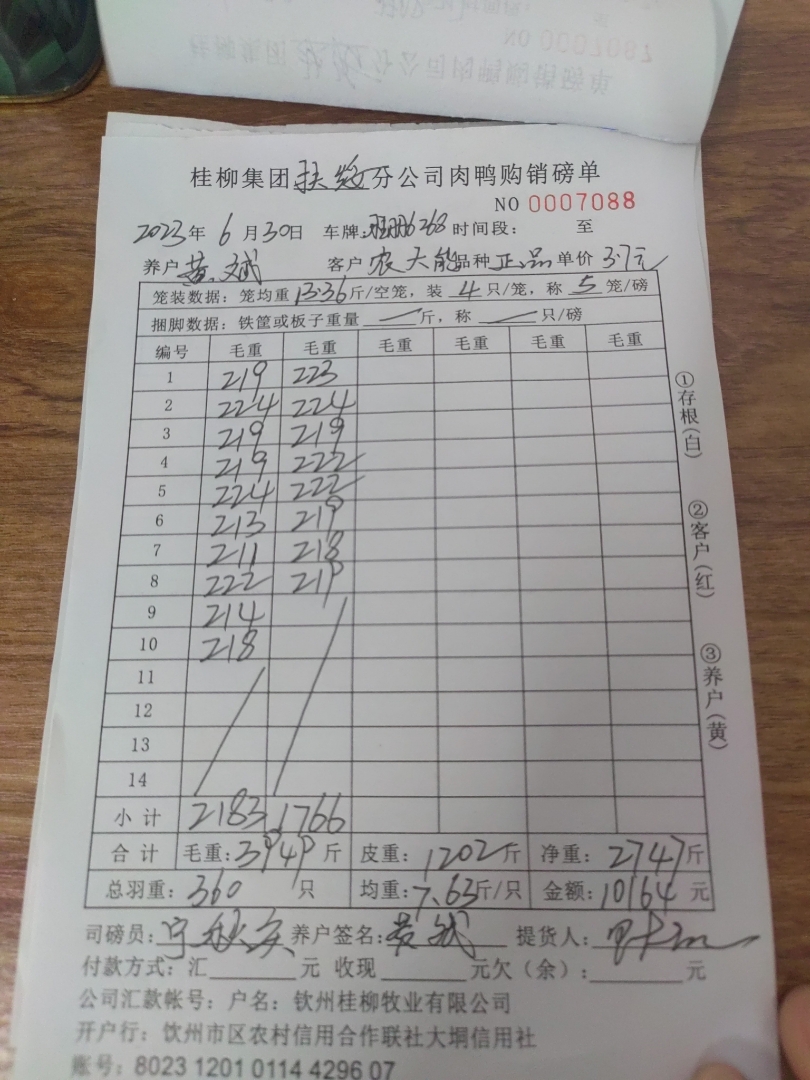 桂柳集团扶绥分公司肉鸭购销磅单
NO 0007088
2023年 6月30日 车牌: 6268 时间段: 至
养户 黄斌 客户 农天能 品种 正品 单价 3.7元
笼装数据: 笼均重 13.36 斤/空笼, 装 4 只/笼, 称 5 笼/磅
捆脚数据: 铁筐或板子重量 — 斤, 称 — 只/磅
编号 毛重 毛重 毛重 毛重 毛重 毛重
1 219 223
2 224 224
3 219 219
4 219 222
5 224 222
6 213 219
7 211 218
8 222 219
9 214
10 218
11
12
13
14
小计 2183 1766
合计 毛重: 3949 斤 皮重: 1202 斤 净重: 2747 斤
总羽重: 360 只 均重: 7.63 斤/只 金额: 10164 元
司磅员: 养户签名: 黄斌 提货人:
付款方式: 汇 元 收现 元欠(余): 元
公司汇款帐号: 户名: 钦州桂柳牧业有限公司
开户行: 饮州市区农村信用合作联社大垌信用社
账号: 8023 1201 0114 4296 07
①存根(白)
②客户(红)
③养户(黄)